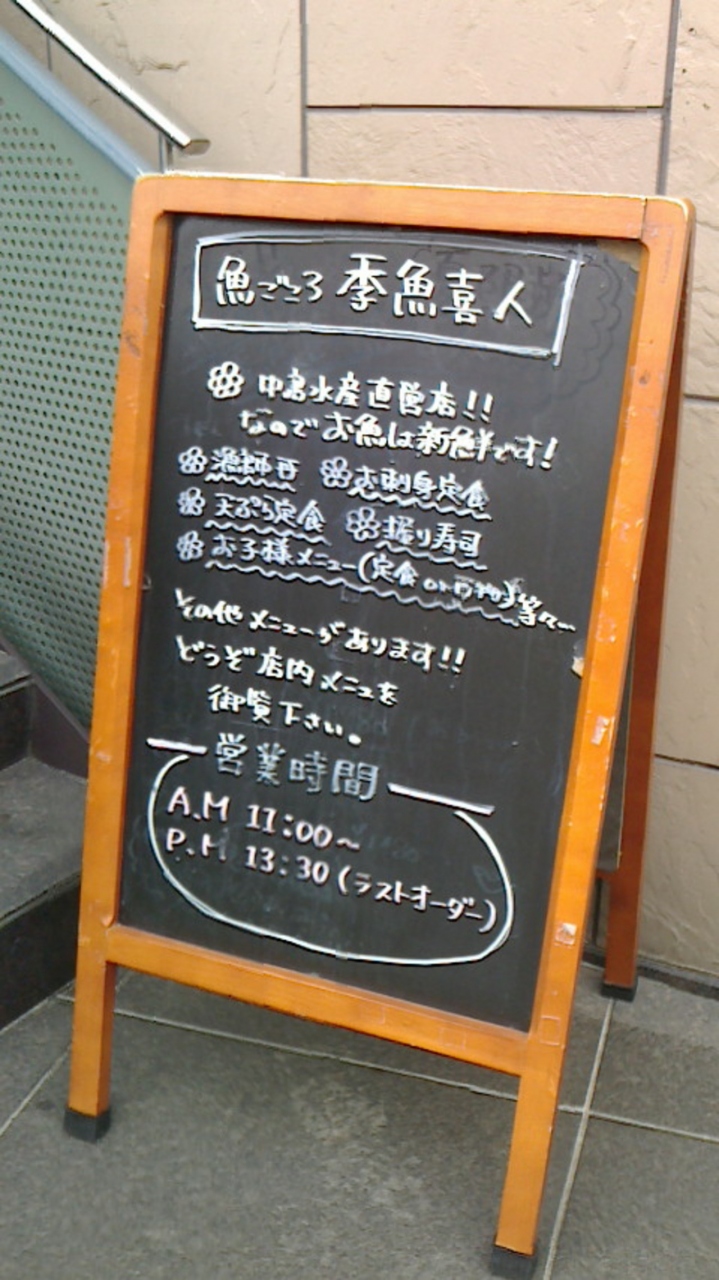 魚ごころ 季魚喜人
中島水産直営店!!
なのでお魚は新鮮です!
漁師丼 お刺身定食
天ぷら定食 握り寿司
お子様メニュー(定食 等々…
その他メニューがあります!!
どうぞ店内メニュを
御覧下さい。
営業時間
A.M 11:00~
P.M 13:30(ラストオーダー)